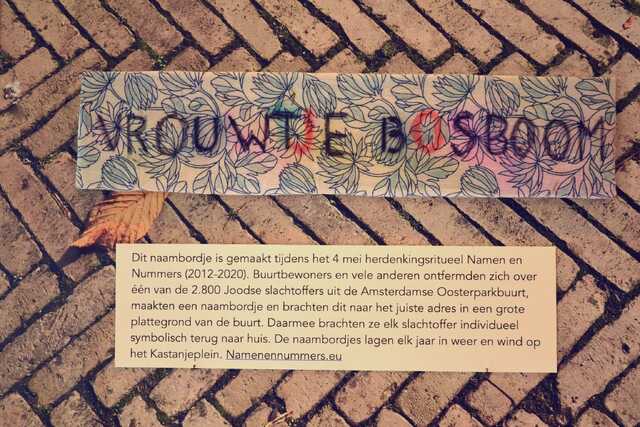 VROUWTJE BOSBOOM
Dit naambordje is gemaakt tijdens het 4 mei herdenkingsritueel Namen en
Nummers (2012-2020). Buurtbewoners en vele anderen ontfermden zich over
één van de 2.800 Joodse slachtoffers uit de Amsterdamse Oosterparkbuurt,
maakten een naambordje en brachten dit naar het juiste adres in een grote
plattegrond van de buurt. Daarmee brachten ze elk slachtoffer individueel
symbolisch terug naar huis. De naambordjes lagen elk jaar in weer en wind op
het Kastanjeplein. Namenennummers.eu